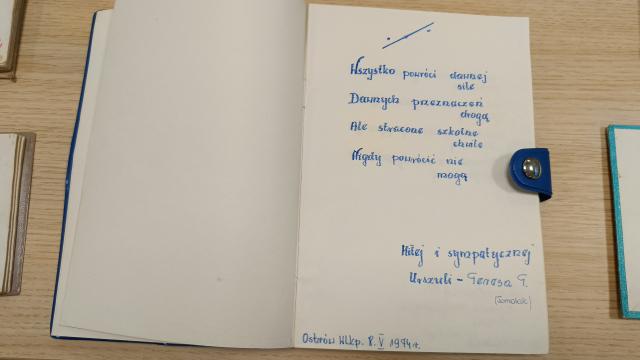 Wszystko powróci dawnej
sile
Dawnych przeznaczeń
drogą
Ale stracone szkolne
chwile
Nigdy powrócić nie
mogą
Miłej i sympatycznej
Urszuli - Teresa G.
Ostrów Wlkp. 8. V 1974 r.